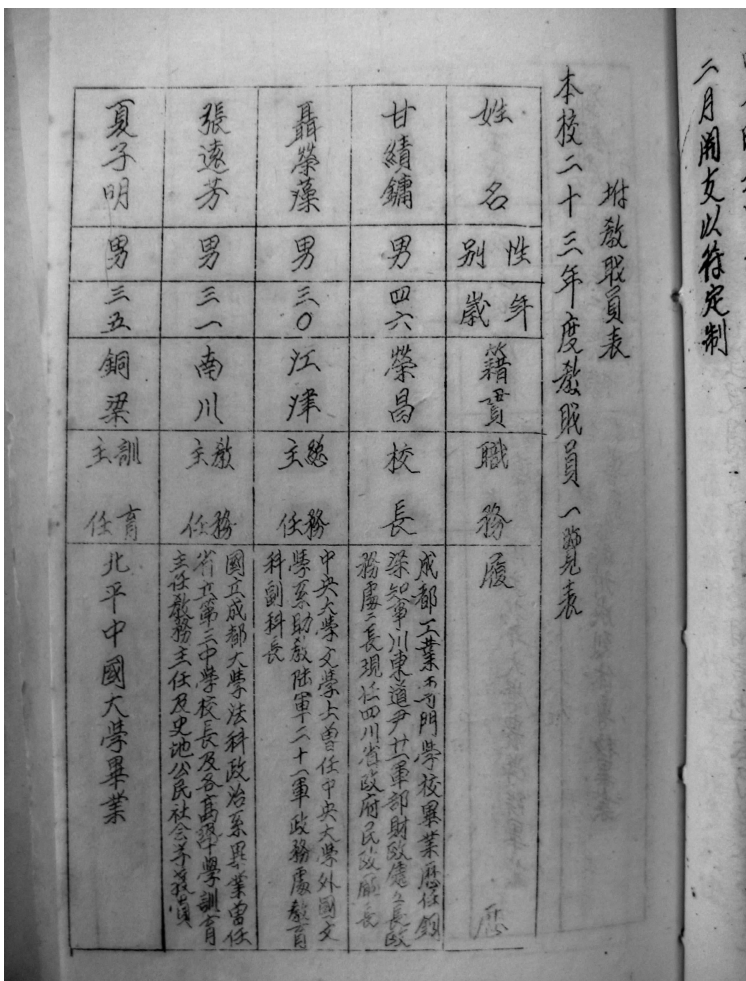 二月開支以符定制
坿教职員表
本校二十三年度教职員一覽表
姓名
性别
年歲
籍貫
職務
履歷
甘績鏞
男
四六
榮昌
校長
成都工業専門學校畢業歷任銅
梁知事川東道尹廿一軍部財政處處長政
務處處長現任四川省政府民政廳長
聶榮藻
男
三〇
江津
總務主任
中央大學文學士曽任中央大學外國文
學系助教陸軍二十一軍政務處教育
科副科長
張遠芳
男
三一
南川
教務主任
國立成都大學法科政治系畢業曽任
省立第三中學校長及各高級中學訓育
主任教務主任及史地公民社會等教員
夏子明
男
三五
銅梁
訓育主任
北平中國大學畢業